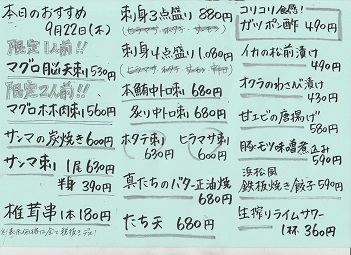 本日のおすすめ
9月22日(木)
限定1人前!!
マグロ脳天刺し530円
限定2人前!!
マグロホホ肉刺し560円
サンマの炭焼き600円
サンマ刺し 1尾630円
半身 390円
椎茸串1本180円
刺身3点盛り 880円
刺身4点盛り1,080円
本鮪中トロ刺し 680円
炙り中トロ刺し 680円
ホタテ刺し 630円
ヒラマサ刺し 600円
真たちのバター正油焼 680円
たち天 680円
コリコリ食感!
ガツポン酢 490円
イカの松前漬け
490円
オクラのわさび漬け
430円
甘エビの唐揚げ
580円
豚モツ味噌煮込み
590円
浜松風
鉄板焼き餃子590円
生搾りライムサワー
1杯 360円